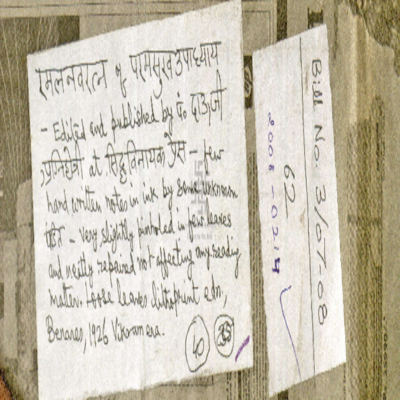 रमलनवरत्न of परमसुखउपाध्याय
- Edited and published by पं दाऊजी
अग्निहोत्री at सिद्धिविनायक प्रेस - few
hand written notes in ink by some unknown
पंडित - Very slightly pinholed in few leaves
and neatly repaired not affecting any reading
matter. Loose leaves lithoprint edn,
Benares, 1926 Vikram era.
40 35
Bill No. 3/07-08
62
2008-0214